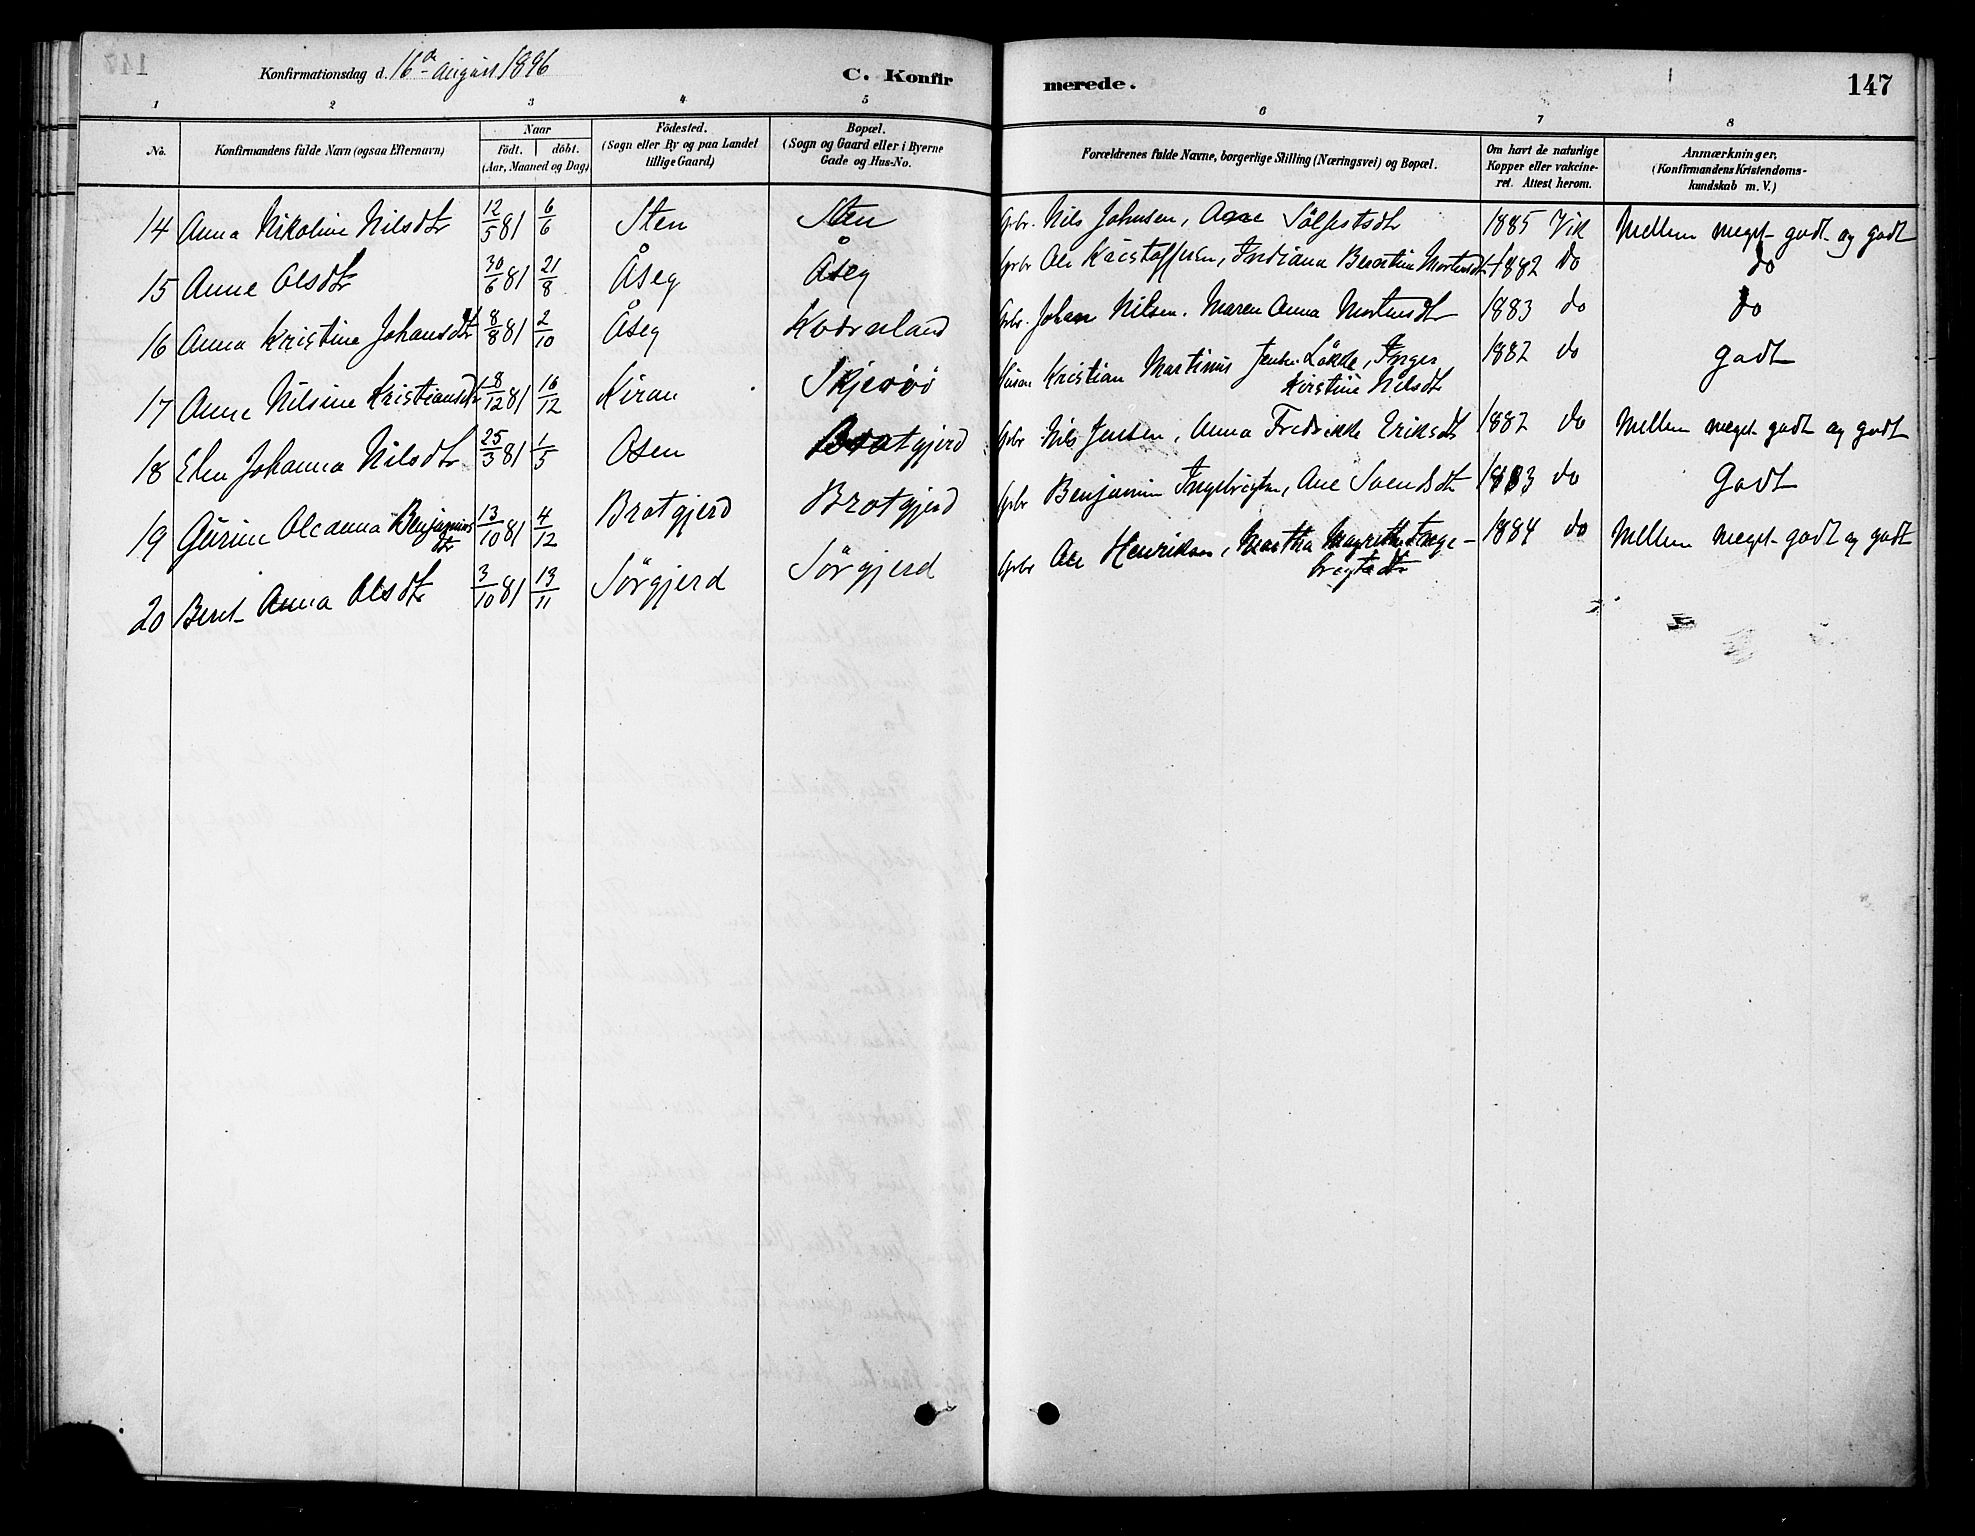 Konfirmationsdag d. 16de August 1896
C. Konfirmerede.
147
1 2 3 4 5 6 7 8
No.
Konfirmandens fulde Navn (ogsaa Efternavn)
Naar
födt. döbt.
(Aar, Maaned og Dag)
Födested.
(Sogn eller By og paa Landet
tillige Gaard)
Bopæl.
(Sogn og Gaard eller i Byerne
Gade og Hus-No.
Forældrenes fulde Navne, borgerlige Stilling (Næringsvei) og Bopæl.
Om havt de naturlige
Kopper eller vakcine-
ret. Attest herom.
Anmærkninger,
(Konfirmandens Kristendoms-
kundskab m. V.)
14 Anna Nikoline Nilsdtr 12/5 81 6/6 Sten Sten Gbr. Nils Johnsen, Ane Sölfestsdtr 1885 Vik Mellem meget godt og godt
15 Anne Olsdtr 30/6 81 21/8 Åseg Åseg Gbr Ole Kristoffersen, Indiana Berntine Mortensdtr 1882 do do
16 Anna Kristine Johansdtr 8/8 81 2/10 Åseg Kvernland Gbr. Johan Nilsen. Maren Anna Mortensdtr 1883 do do
17 Anne Nilsine Kristiansdtr 8/12 81 16/12 Kiran Skjervö Husm Kristian Martinus Jentse Lökke, Inger
Kirstine Nilsdtr 1882 do Godt
18 Elen Johanna Nilsdtr 25/3 81 1/5 Osen Bratgjerd Gbr Nils Jensen, Anna Fredrikke Eriksdtr 1882 do Mellem meget godt og godt
19 Gurine Oleanna Benjamins
dtr 13/10 81 4/12 Bratgjerd Bratgjerd Gbr Benjamin Ingebrigtsen, Ane Svendsdtr 1883 do Godt
20 Beret Anna Olsdtr 3/10 81 13/11 Sörgjerd Sörgjerd Gbr Ole Henriksen, Martha Magrethe Inge-
brigtsdtr 1884 do Mellem meget godt og godt